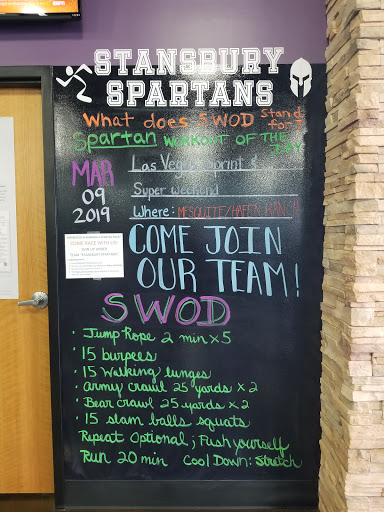 STANSBURY
SPARTANS
What does SWOD Stand for?
Spartan WORKOUT OF THE DAY
MAR
09
2019
Las Vegas Sprint &
Super weekend
Where: MESQUITE/HAFEN RANCH
COME JOIN
OUR TEAM!
COME RACE WITH US!
SWOD
· Jump Rope 2 min x 5
· 15 burpees
· 15 Walking lunges
· Army crawl 25 yards x 2
· Bear crawl 25 yards x 2
· 15 slam balls squats
Repeat Optional; Push yourself
Run 20 min Cool Down: Stretch